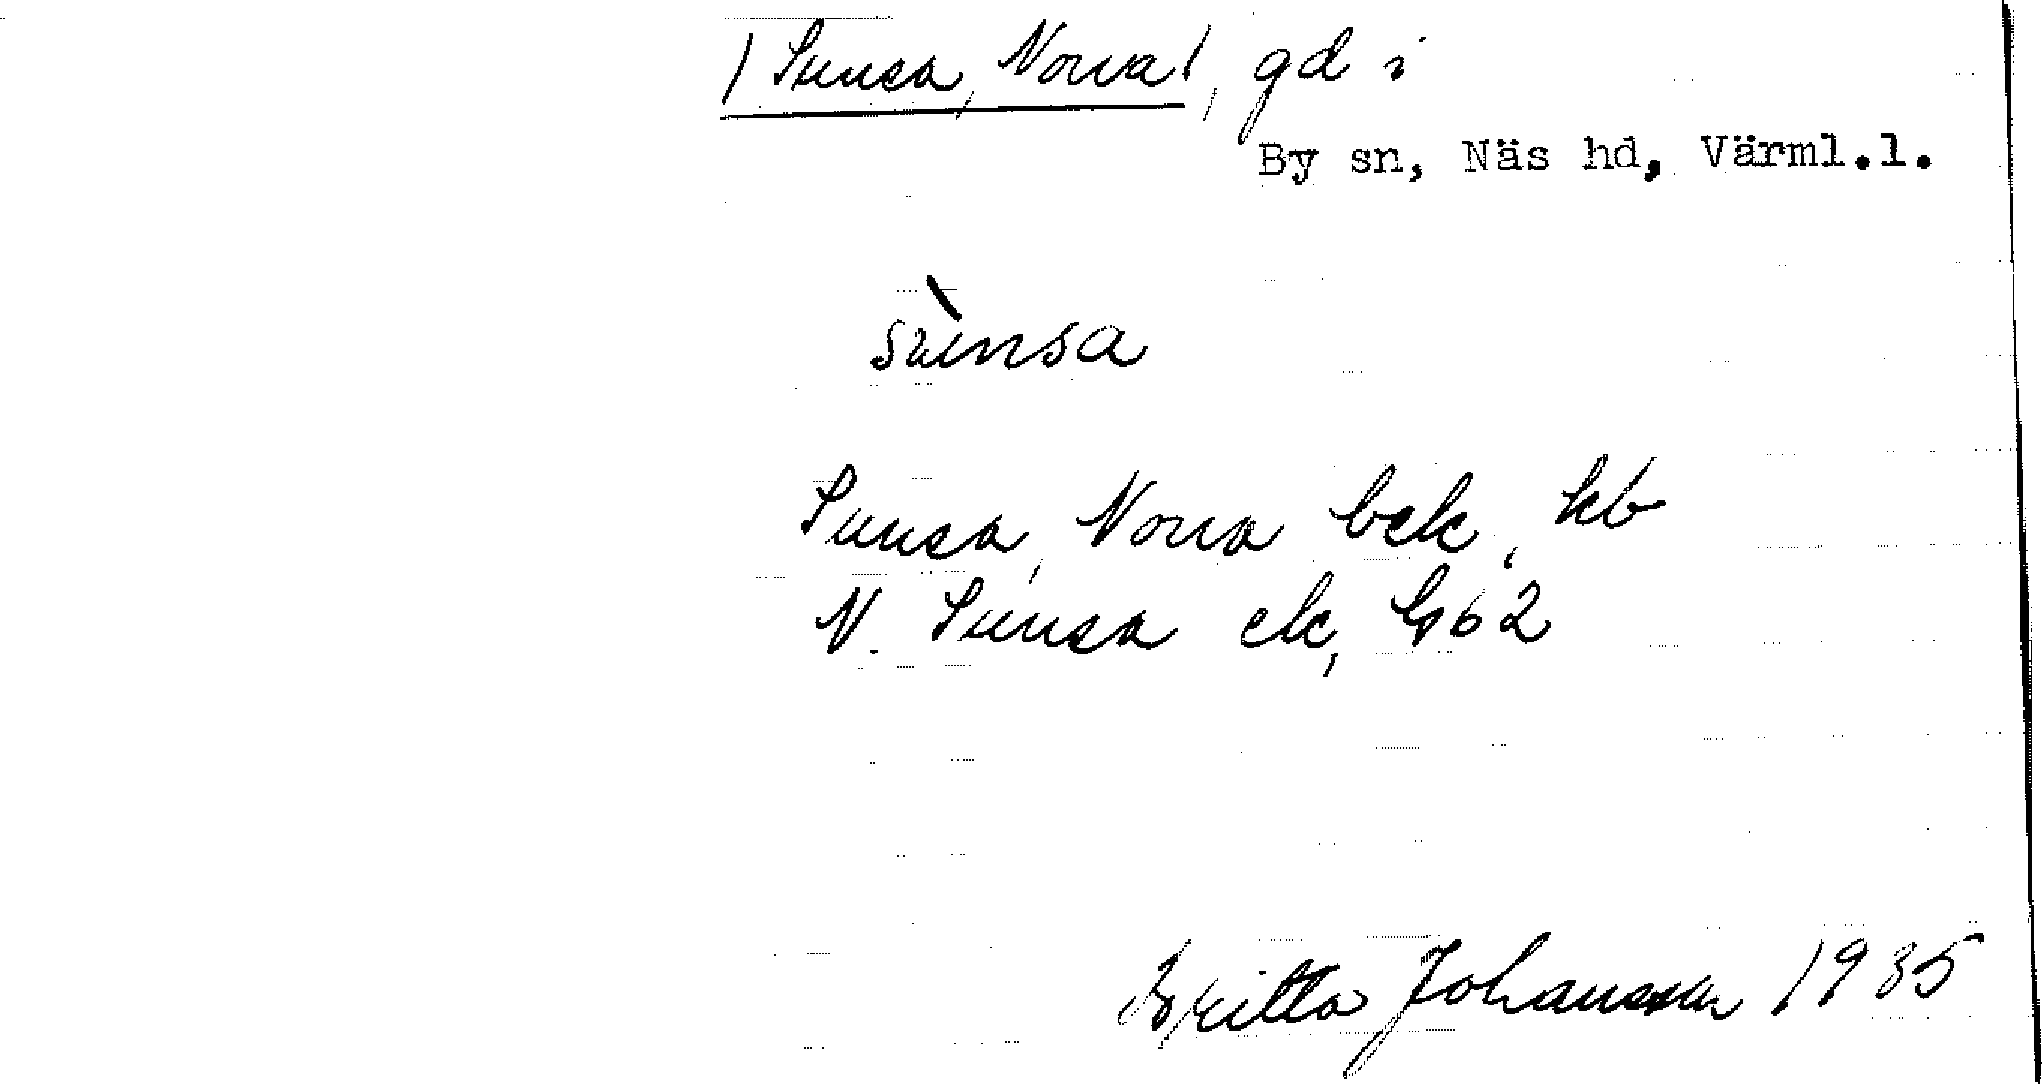 /Sunsa, Norra/, gd i
By sn, Näs hd, Värml.l.
sùnsa
Sunsa, Norra bek, kb
N. Sunsa ek,
Britta Johansson 1935